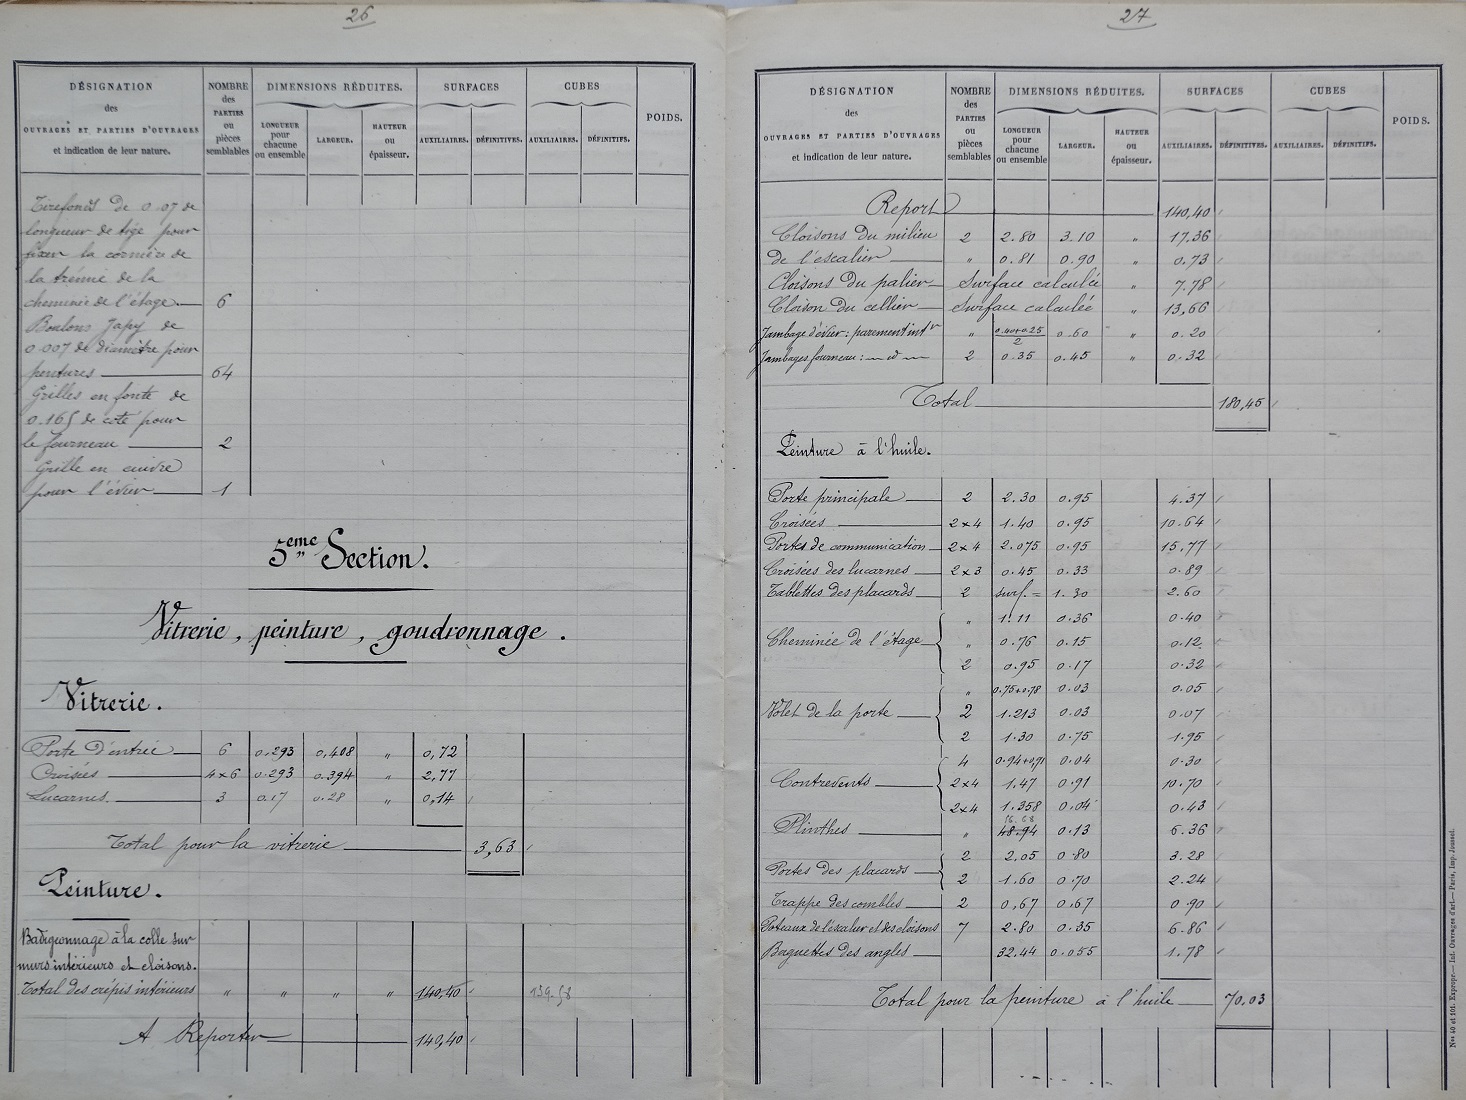 26
DÉSIGNATION
des
OUVRAGES ET PARTIES D'OUVRAGES
et indication de leur nature.
NOMBRE
des
PARTIES
ou
pièces
semblables
DIMENSIONS RÉDUITES.
LONGUEUR
pour
chacune
ou ensemble
LARGEUR.
HAUTEUR
ou
épaisseur.
SURFACES
AUXILIAIRES.
DÉFINITIVES.
CUBES
AUXILIAIRES.
DÉFINITIFS.
POIDS.
Tirefonds de 0.07 de
longueur de tige pour
fixer la cornière de
la trémie de la
cheminée de l'étage 6
Boulons Japy de
0.007 de diamètre pour
pentures 64
Grilles en fonte de
0.165 de côté pour
le fourneau 2
Grille en cuivre
pour l'évier 1
5eme Section.
Vitrerie, peinture, goudronnage.
Vitrerie.
Porte d'entrée 6 0.293 0,408 " 0,72
Croisées 4x6 0.293 0.394 " 2,77
Lucarnes. 3 0.17 0.28 " 0,14
Total pour la vitrerie 3,63
Peinture.
Badigeonnage à la colle sur
murs intérieurs et cloisons.
Total des crépis intérieurs " " " " 140,40 139.58
A Reporter 140,40
27
DÉSIGNATION
des
OUVRAGES ET PARTIES D'OUVRAGES
et indication de leur nature.
NOMBRE
des
PARTIES
ou
pièces
semblables
DIMENSIONS RÉDUITES.
LONGUEUR
pour
chacune
ou ensemble
LARGEUR.
HAUTEUR
ou
épaisseur.
SURFACES
AUXILIAIRES.
DÉFINITIVES.
CUBES
AUXILIAIRES.
DÉFINITIFS.
POIDS.
Report 140,40
Cloisons du milieu 2 2.80 3.10 " 17.36
de l'escalier " 0.81 0.90 " 0.73
Cloisons du palier Surface calculée " 7.78
Cloison du cellier Surface calculée " 13,66
Jambage d'évier: parement intr " 0.40+0.25/2 0.60 " 0.20
Jambages fourneau: — id — 2 0.35 0.45 " 0.32
Total 180,45
Peinture à l'huile.
Porte principale 2 2.30 0.95 4.37
Croisées 2x4 1.40 0.95 10.64
Portes de communication 2x4 2.075 0.95 15.77
Croisées des lucarnes 2x3 0.45 0.33 0.89
Tablettes des placards 2 surf. = 1.30 2.60
" 1.11 0.36 0.40
Cheminée de l'étage " 0.76 0.15 0.12
2 0.95 0.17 0.32
" 0.75+0.78 0.03 0.05
Volet de la porte 2 1.213 0.03 0.07
2 1.30 0.75 1.95
4 0.94+0,91 0.04 0.30
Contrevents 2x4 1.47 0.91 10.70
2x4 1.358 0.04 0.43
Plinthes " 48.94 0.13 6.36
2 2.05 0.80 3.28
Portes des placards 2 1.60 0.70 2.24
Trappe des combles 2 0,67 0.67 0.90
Poteaux de l'escalier et des cloisons 7 2.80 0.35 6.86
Baguettes des angles 32.44 0.055 1.78
Total pour la peinture à l'huile 70.03
Nos 40 et 101. Expropr.— Int. Ouvrages d'art.— Paris, Imp. Jousset.